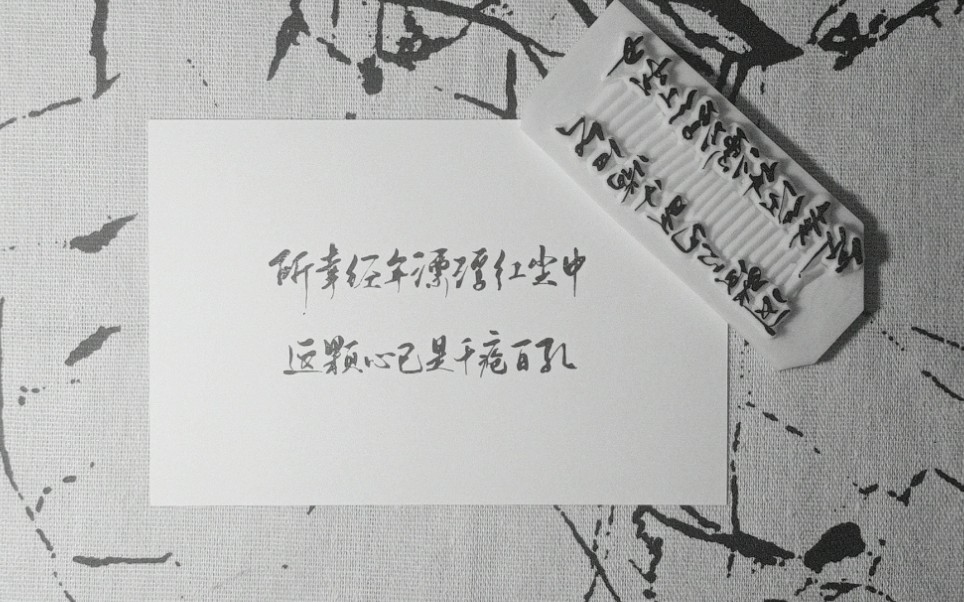 所幸经年漂浮红尘中
这颗心已是千疮百孔